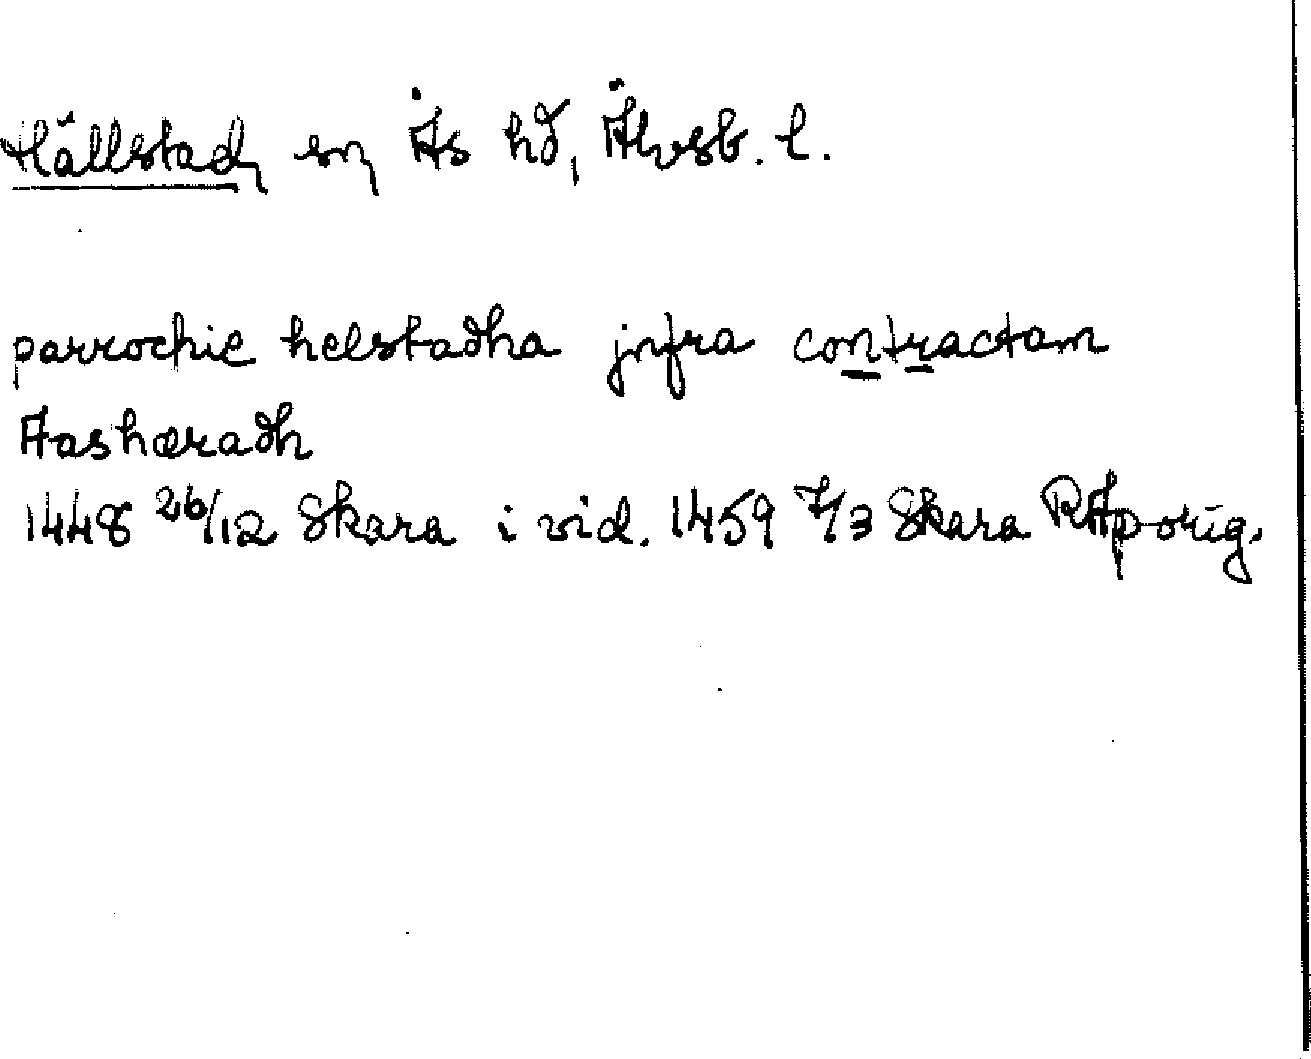 Hällstad sn Ås hd, Älvsb. l.
parrochie helstadha jnfra contractam
Aashæradh
1448 26/12 Skara i vid. 1459 7/3 Skara RAp orig.